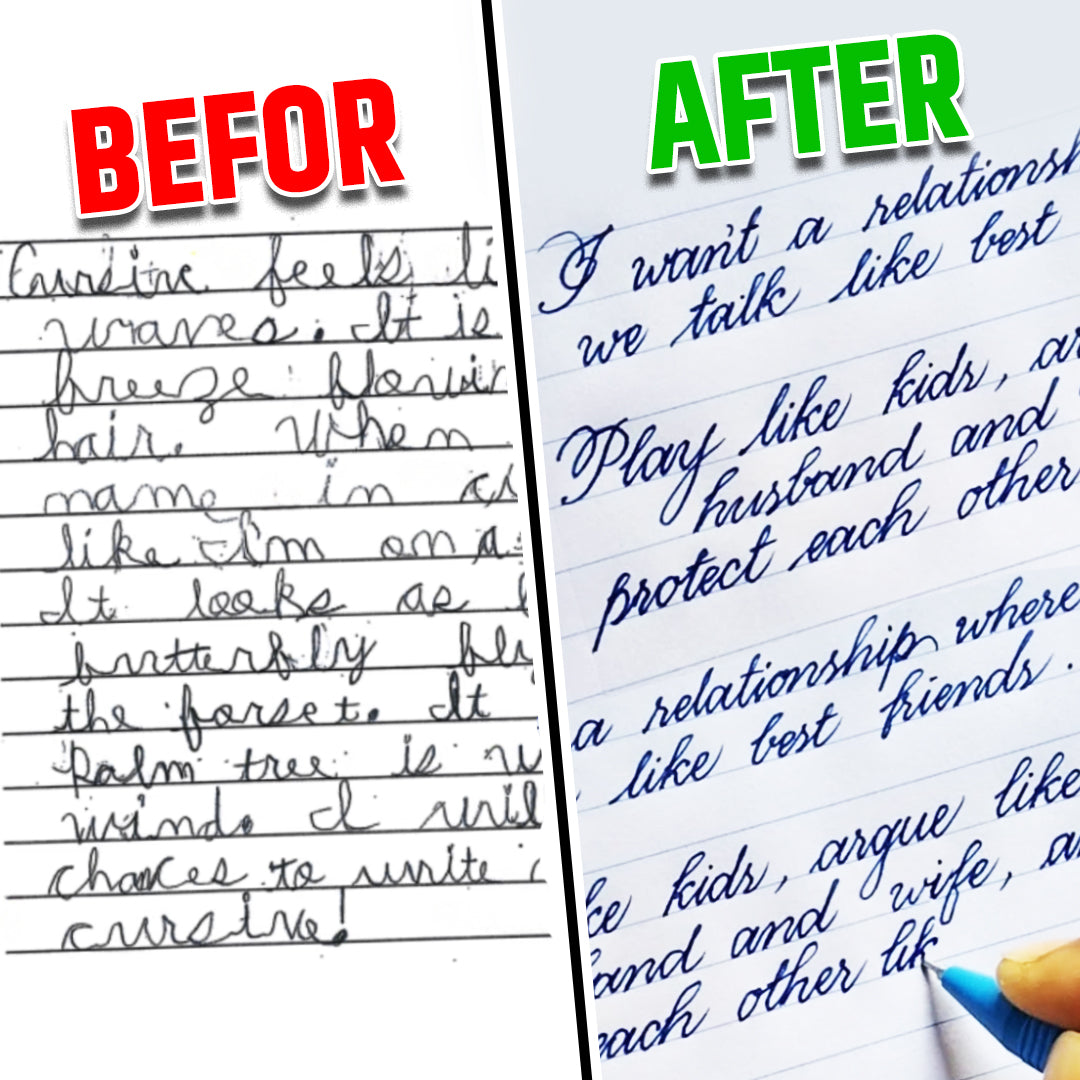 BEFOR
Cursive feels li
waves. It is
breeze blowin
hair. When
name in cu
like I'm on a
It looks as
butterfly fly
the forset. It
Palm tree is
wind. I wil
chances to write
cursive!
AFTER
I want a relationsh
we talk like best
Play like kids, ar
husband and
protect each other
a relationship where
like best friends.
ke kids, argue like
and and wife, an
each other lik